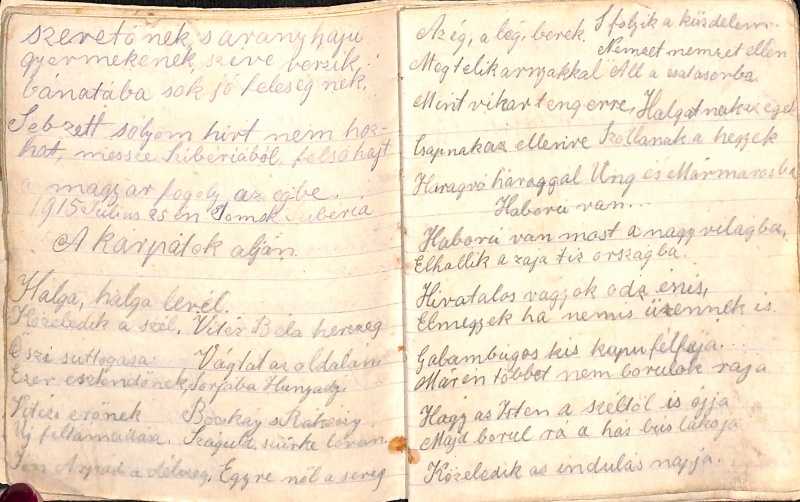 szeretőnek, s arany haju
gyermekének, szive vérzik,
bánatába sok jó feleségnek.
Sebzett sólyom hirt nem hoz-
hat, messze Szibériából, felsóhajt
a magyar fogoly az égbe.
1915 Julius 25 én Tomsk Szibéria
A Karpátok alján
Halga, halga levél.
Közeledik a szél, Vitéz Béla herczeg
Őszi suttogása Vágtat az oldalan
Ezer esztendőnek, Sorjába Hunyady,
Vitézi erőnek Bocskay s Rákoczy
Uj feltámadása. Száguld, szürke lovan.
Jön Árpad a délczeg, Egyre nől a sereg
Az ég, a lég, berek. S folyik a küzdelem
Nemzet nemzet ellen
Megtelik arnyakkal All a csatasorba
Mint vihar tengerre, Halgatnak az egek
Csapnak az ellenre Szollanak a hegyek
Haragvó haraggal Ung és Mármarosba
Haboru van...
Haboru van most a nagy világba,
Elhallik a zaja tiz országba.
Hivatalos vagyok oda énis,
Elmegyek ha nemis üzennek is
Galambugos kis kapu félfája...
Már én többet nem borulok rája
Hagy as Isten a széltől is ójja
Majd borul rá a hás bus lakója
Közeledik as indulás napja.